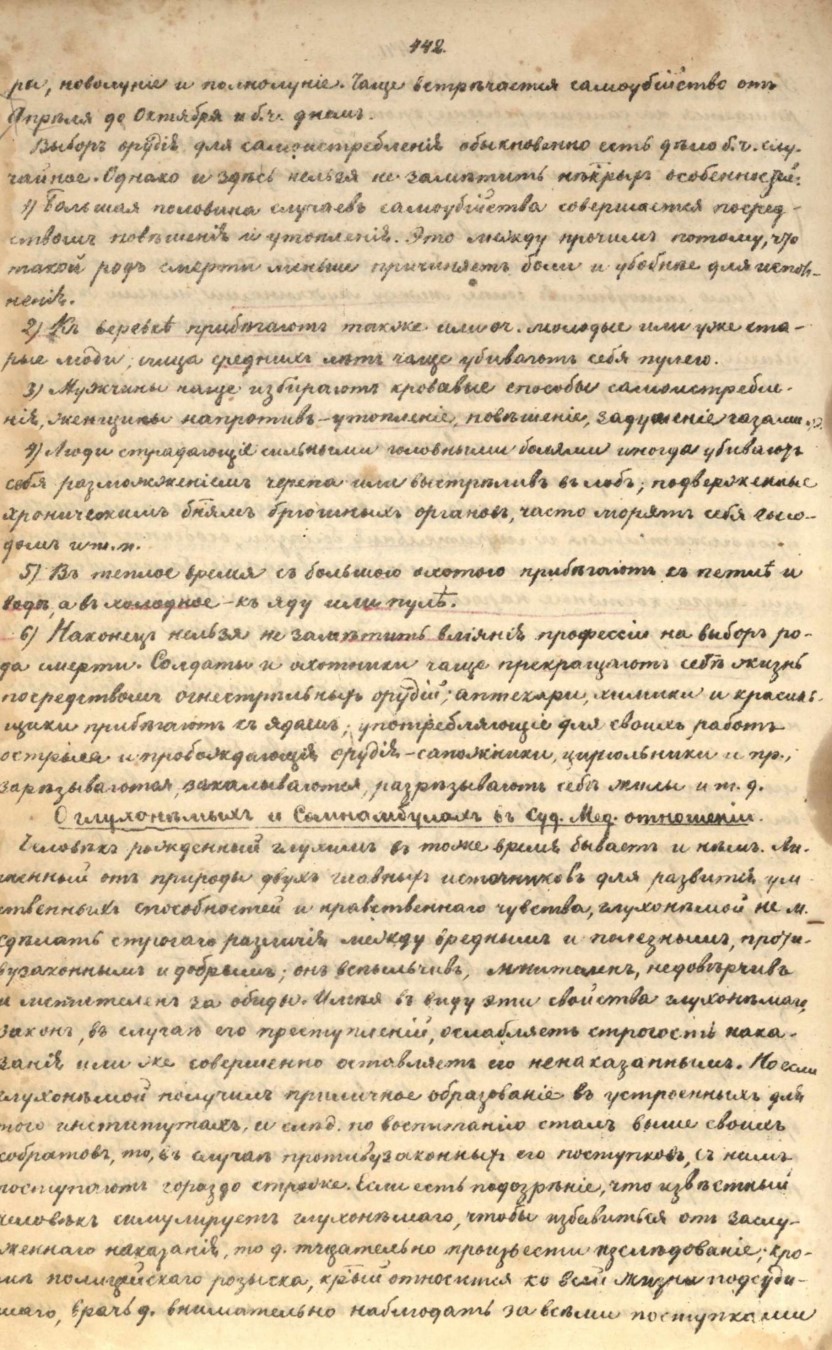 442.
ры, новолуніе и полнолуніе. Чаще встрѣчается самоубійство отъ
Апрѣля до Октября и б.ч. днемъ.
Выборъ орудія для самоистребленія обыкновенно есть дѣло б.ч. слу-
чайное. Однако и здѣсь нельзя не замѣтить нѣкрыхъ особенностей:
1) Большая половина случаевъ самоубійства совершается посред-
ствомъ повѣшенія и утопленія. Это между прочимъ потому, что
такой родъ смерти меньше причиняетъ боли и удобнѣе для испол-
ненія.
2) Къ веревкѣ прибѣгаютъ также или оч. молодые или уже ста-
рые люди; лица среднихъ лѣтъ чаще убиваютъ себя пулею.
3) Мужчины чаще избираютъ кровавые способы самоистребле-
нія, женщины напротивъ – утопленіе, повѣшеніе, задушеніе газами.
4) Люди страдающіе сильными головными болями иногда убиваютъ
себя размозженіемъ черепа или выстрѣливъ въ лобъ; подверженные
хроническимъ бнямъ брюшныхъ органовъ, часто морятъ себя голо-
домъ и т.п.
5) Въ теплое время съ большою охотою прибѣгаютъ къ петлѣ и
водѣ, а въ холодное – къ яду или пулѣ.
6) Наконецъ нельзя не замѣтить вліянія профессіи на выборъ ро-
да смерти. Солдаты и охотники чаще прекращаютъ себѣ жизнь
посредствомъ огнестрѣльныхъ орудій; аптекари, химики и красиль-
щики прибѣгаютъ къ ядамъ; употребляющіе для своихъ работъ
острыя и пробождающія орудія – сапожники, цирюльники и пр.,
зарѣзываются, закалываются, разрѣзываютъ себѣ жилы и т.д.
О глухонѣмыхъ и Сомнамбулахъ въ Суд. Мед. отношеніи.
Человѣкъ рожденный глухимъ въ тоже время бываетъ и нѣмъ. Ли-
шенный отъ природы двухъ главныхъ источниковъ для развитія ум
ственныхъ способностей и нравственнаго чувства, глухонѣмой не м.
сдѣлать строгаго различія между вреднымъ и полезнымъ, проти-
вузаконнымъ и добрымъ; онъ вспыльчивъ, мнителенъ, недовѣрчивъ
и мстителенъ за обиды. Имѣя въ виду эти свойства глухонѣмаго,
законъ, въ случаѣ его преступленій, ослабляетъ строгость нака-
занія или же совершенно оставляетъ его ненаказаннымъ. Но если
глухонѣмой получилъ приличное образованіе въ устроенныхъ для
того институтахъ, и слѣд. по воспитанію сталъ выше своихъ
собратовъ, то, въ случаѣ противузаконныхъ его поступковъ, съ нимъ
поступаютъ гораздо строже. Если есть подозрѣніе, что извѣстный
человѣкъ симулируетъ глухонѣмаго, чтобы избавиться отъ заслу-
женнаго наказанія, то д. тщательно произвести изслѣдованіе; кро-
мѣ полицейскаго розыска, крый относится ко всей жизни подсуди-
маго, врачъ д. внимательно наблюдать за всѣми поступками